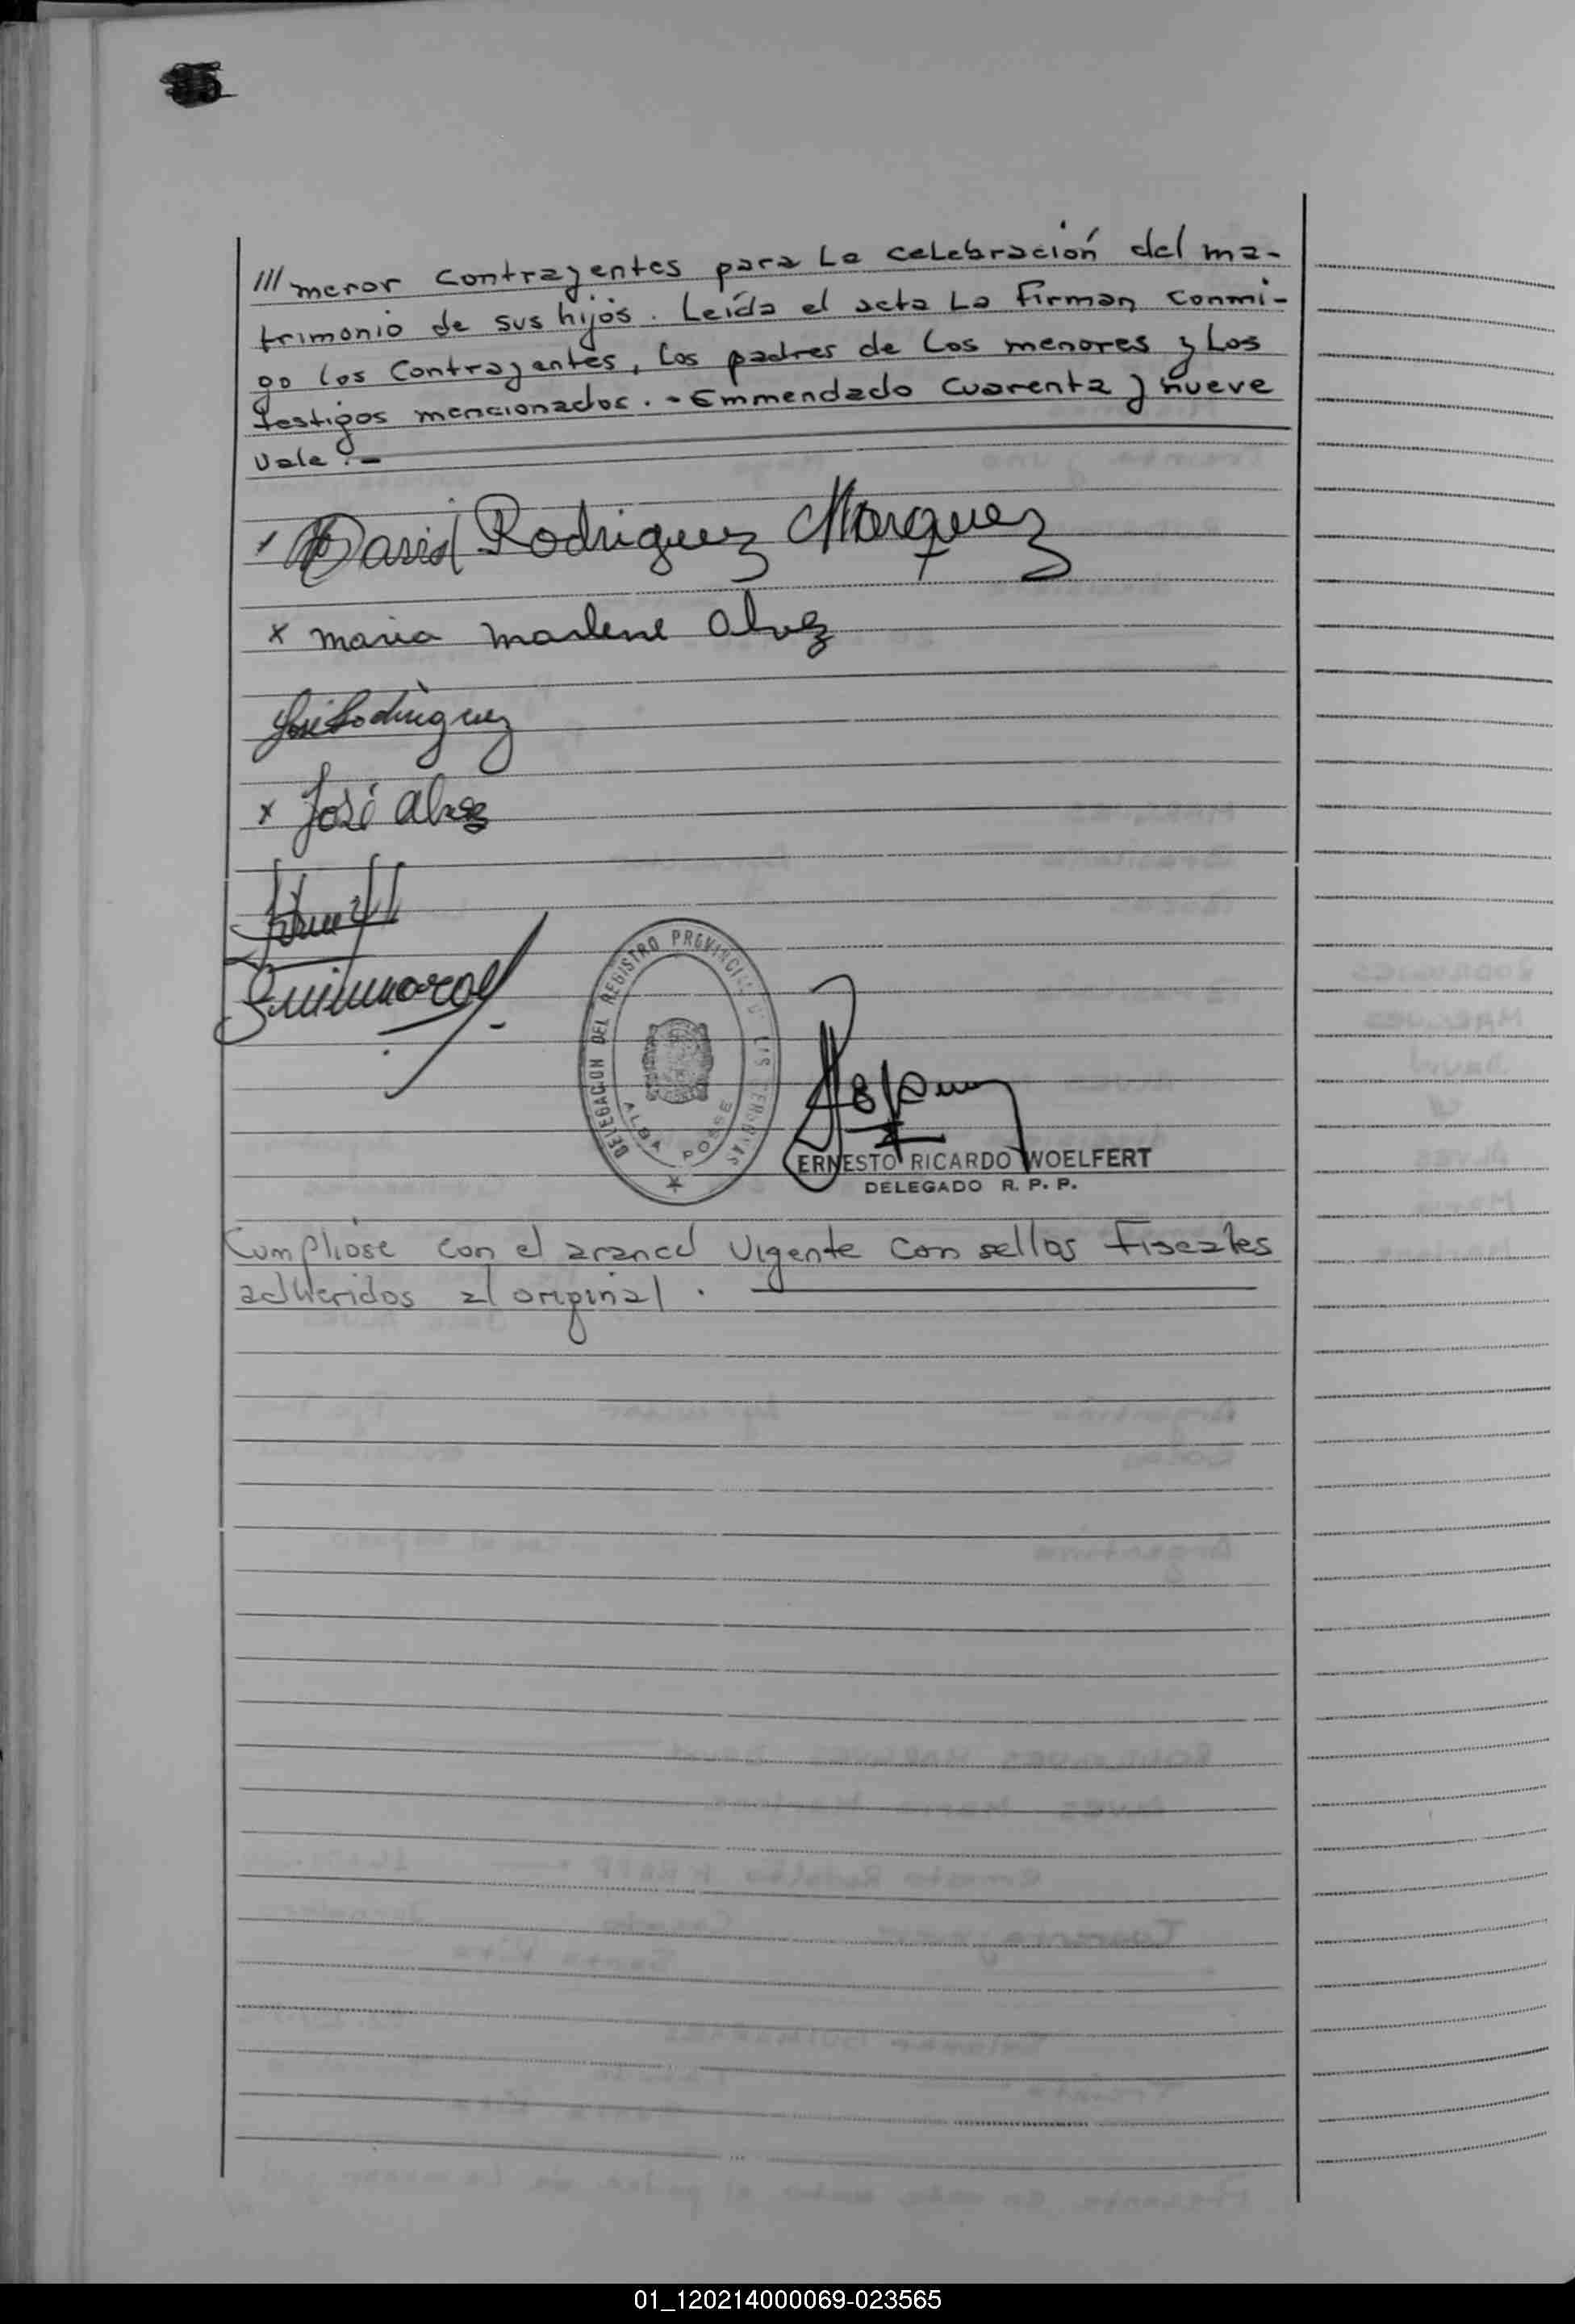 /// menor contrayentes para La celebración del ma-
trimonio de sus hijos. Leída el acta La Firman conmi-
go los Contrayentes, Los padres de Los menores y Los
testigos mencionados. - Emmendado cuarenta y nueve
Vale. -
David Rodriguez Marquez
x maria marlene Alvez
José Rodriguez
x José alvez
DELEGACION DEL REGISTRO PROVINCIAL DE LAS PERSONAS
ALBA POSSE
ERNESTO RICARDO WOELFERT
DELEGADO R. P. P.
Cumpliose con el arancel Vigente con sellos Fiscales
adheridos al original.
01_120214000069-023565